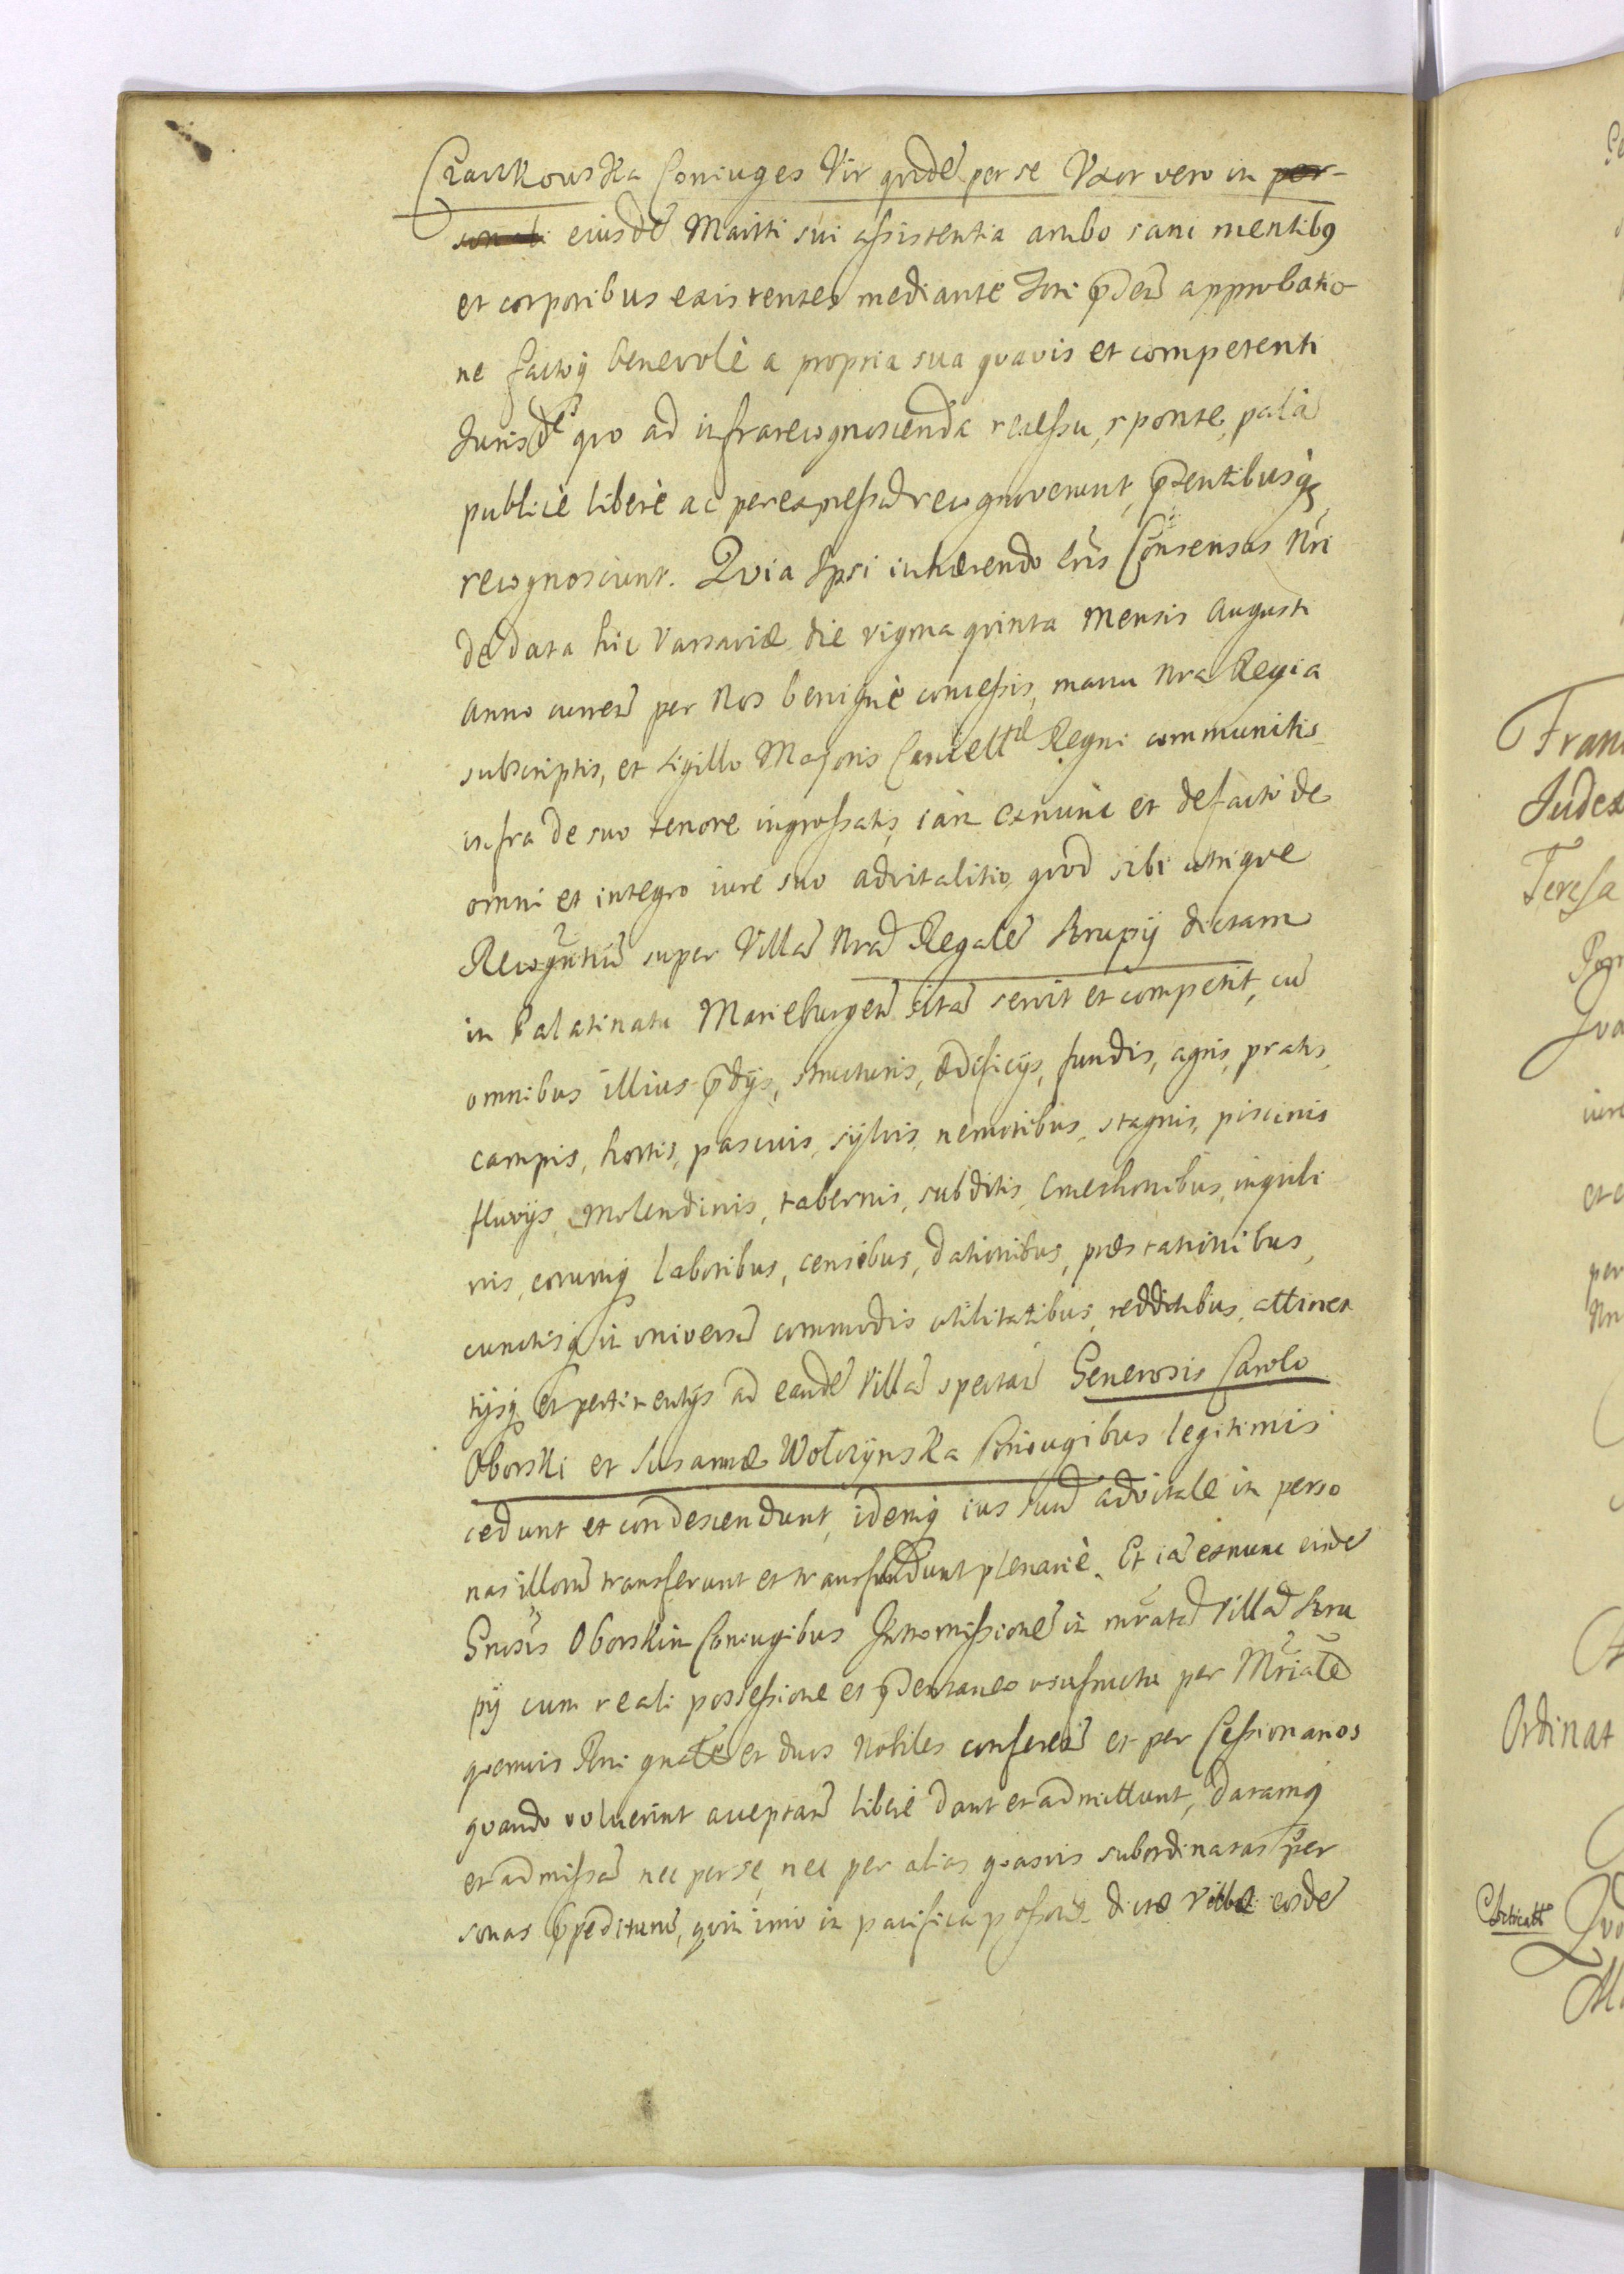 Czaykowska Coniuges Vir quidē per se Vxor vero in per-
sonali eiusdē Mariti sui assistentia ambo sani mentibꝯ
et corporibus existentes mediante Fori p̄señ approbatio
ne factaq̨ benevolè a propria sua quavis et competenti
Jurisdē quo ad infrarecognoscenda recessu, sponte, palā
publicè liberè ac per expressū recognoverunt, p̄sentibusq̨
recognoscunt. Quia Ipsi inhærendo Lrīs Consensus Nrī
de data hic Varsaviæ die vigma quinta Mensis Augusti
Anno curreñ per Nos benignè concessis, manu Nra Regia
subscriptis, et Sigillo Majoris Cancellæ Regni communitis
infra de suo tenore ingrossatis, iam exnunc et defacto de
omni et integro iure suo advitalitio, quod sibi utrique
Recognn̄tiū super Villā Nrā Regalē Krupy dictam
in Palatinatu Marieburgeñ sitā servit et competit, cū
omnibus illius p̄dijs, structuris, ædificijs, fundis, agris, pratis,
campis, hortis, pascuis, sylvis, nemoribus, stagnis, piscinis
fluvijs, Molendinis, tabernis, subditis, Cmethonibus, inquili
nis, eorumq̨ laboribus, censibus, dationibus, præstationibus,
cunctisq̨ in universū commodis utilitatibus, redditibus, attinen
tijsq̨ et pertinentijs ad eandē Villā spectañ Generosis Carolo
Oborski et Susannæ Wołczynska Coniugibus legitimis
cedunt et condescendunt, idemq̨ ius suū advitale in perso
nas illorū transferunt et transfundunt plenariè. Et iā exnunc eisdē
Gnosis Oborskim Coniugibus Intromissionē in mratā Villā Kru
py cum reali possessione et p̄sentaneo usufructu per Mriālē
quemvis Rni gnālē et duos Nobiles confereñ et per Cessionarios
quando voluerint acceptañ liberè dant et admittunt, datamq̨
et admissā nec per se, nec per alias quasvis subordinatas per
sonas impedituru, quin imo in pacifica possone dictæ Villæ eosdē
Fran
Judex
Teresa
iure
et
per
Ordinat